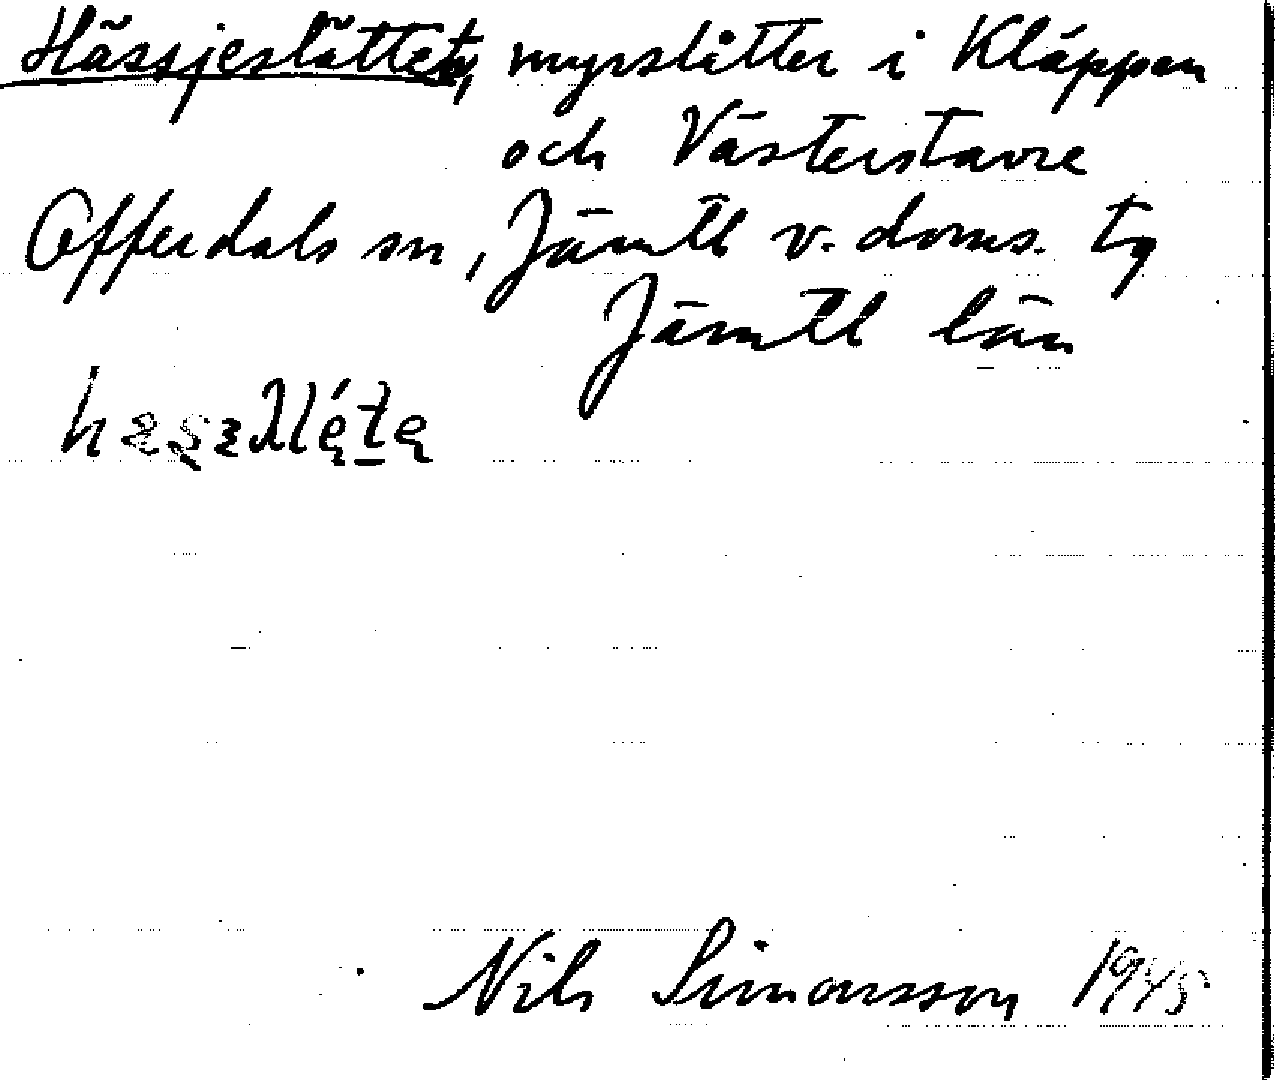 Hässjeslättet, myrslåtter i Kläppen
och Västerstavre
Offerdals sn, Jämtl v. doms. tg
Jämtl län
Nils Simonsson 1945